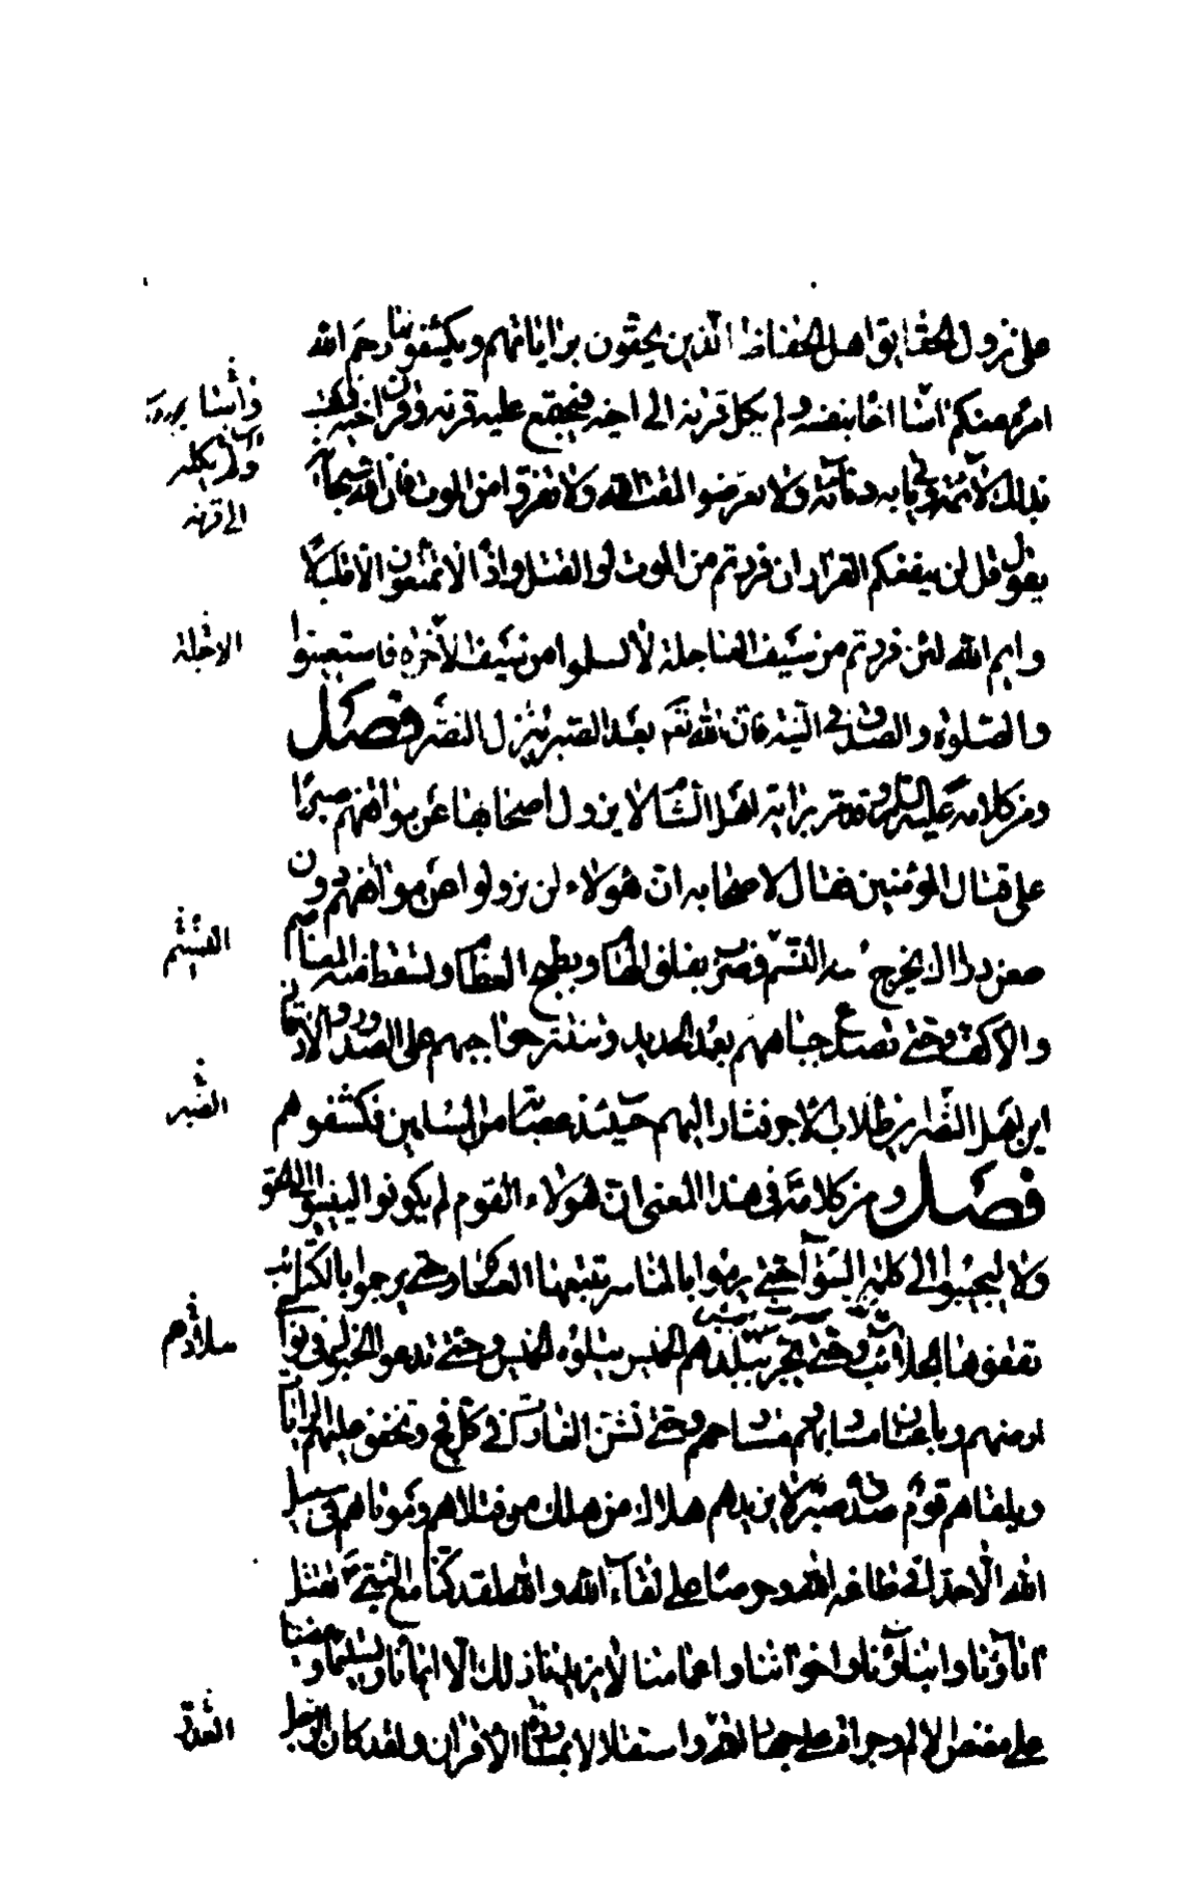 على نزول الحقايق اهل الحفاظ الذين يحفون براياتهم ويكشفونها رحم الله
امرء منكم اسا اخاه بنفسه ولم يكل قرنه الى اخيه فيجتمع عليه قرنه وقرن اخيه فيكتسب
بذلك لائمة ويأتى به دنائة ولا تعرضوا لمقت الله ولا تفروا من الموت فان الله سبحانه
يقول قل لن ينفعكم الفرار ان فررتم من الموت او القتل واذا لا تمتعون الا قليلا
وايم الله لئن فررتم من سيف العاجلة لا تسلموا من سيف الاخرة فاستعينوا
والصلوة والصدق فى النية فان الله تعالى بعد الصبر ينزل النصر فصل
ومن كلامه عليه السلم وقد مر براية لاهل الشام لا يزول اصحابها عن مواقفهم صبرا
على قتال المؤمنين فقال لاصحابه ان هولاء لن يزولوا عن مواقفهم دون
طعن دراك يخرج منه النسم وضرب يفلق الهام ويطيح العظام وتسقط منه المعاصم
والاكف وحتى تصدع جباههم بعمد الحديد وتنتثر حواجبهم على الصدور والاذقان
اين اهل النصر اين طلاب الاجر فثار اليهم حينئذ عصابة من المسلمين فكشفوهم
فصل ومن كلامه فى هذا المعنى ان هولاء القوم لم يكونوا لينيبوا الى الحق
ولا ليجيبوا الى كلمة السوآء حتى يرموا بالمناسر تتبعها العساكر وحتى يرجموا بالكتائب
تقفوها الجلائب وحتى يجر ببلادهم الخميس يتلوه الخميس وحتى تدعق الخيول فى نواحى
ارضهم وباعنان مساربهم ومسارحهم وحتى تشن الغارات فى كل فج وتخفق عليهم الرايات
ويلقاهم قوم صدق صبر لا يزيدهم هلاك من هلك من قتلاهم وموتاهم فى سبيل
الله الا جدا فى طاعة الله وحرصا على لقاء الله والله لقد كنا مع النبى نقتل
ابآؤنا وابنآؤنا واخواننا واعمامنا لا يزيدنا ذلك الا ايمانا وتسليما ومضيا
على مضض الالم وجراة على جهاد العدو واستقلالا بمبارزة الاقران ولقد كان الرجل
ولم يكله
الى قرنه
الاجلة
القسم
الصبر
العدو